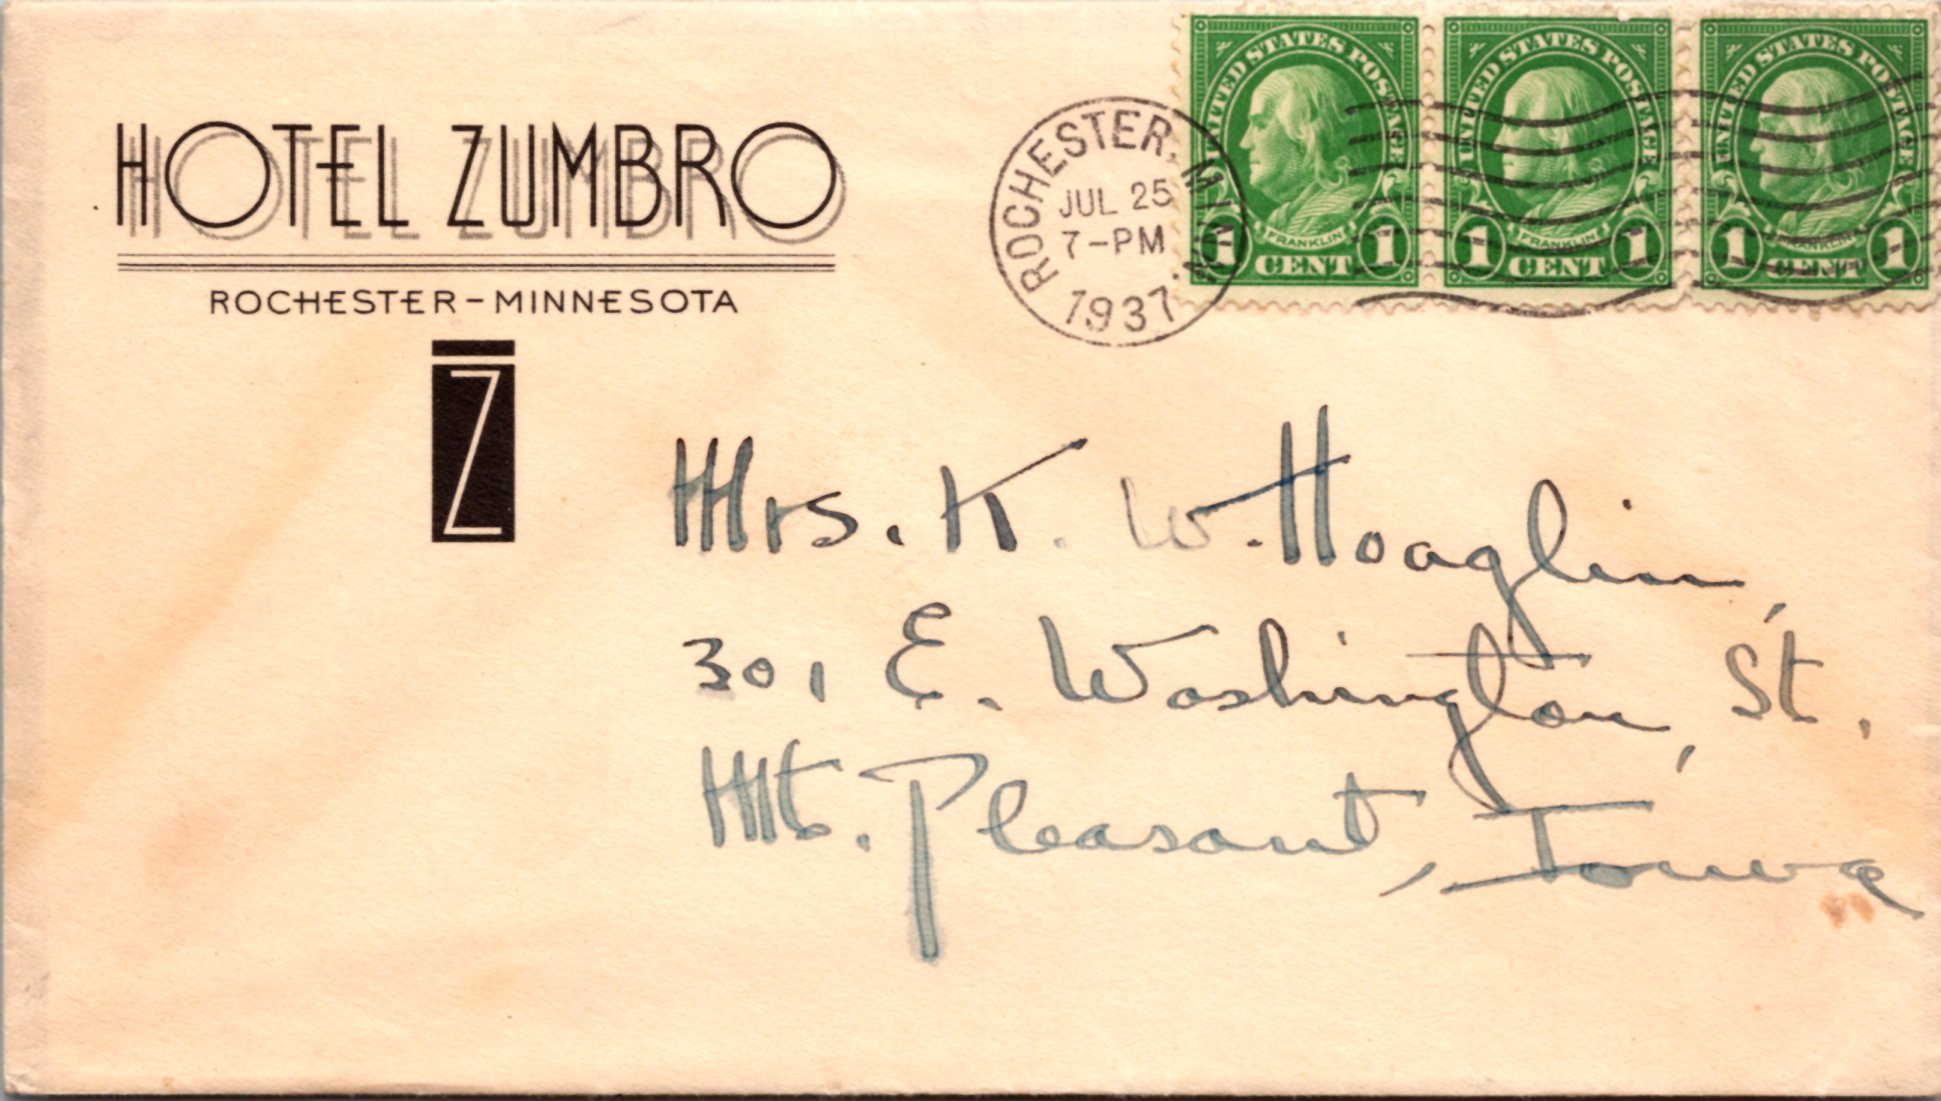 HOTEL ZUMBRO
ROCHESTER-MINNESOTA
Z
ROCHESTER, MINN.
JUL 25
7-PM
1937
UNITED STATES POSTAGE
FRANKLIN
1 CENT 1
UNITED STATES POSTAGE
FRANKLIN
1 CENT 1
UNITED STATES POSTAGE
FRANKLIN
1 CENT 1
Mrs. K. W. Hoaglin,
301 E. Washington, St.
Mt. Pleasant, Iowa